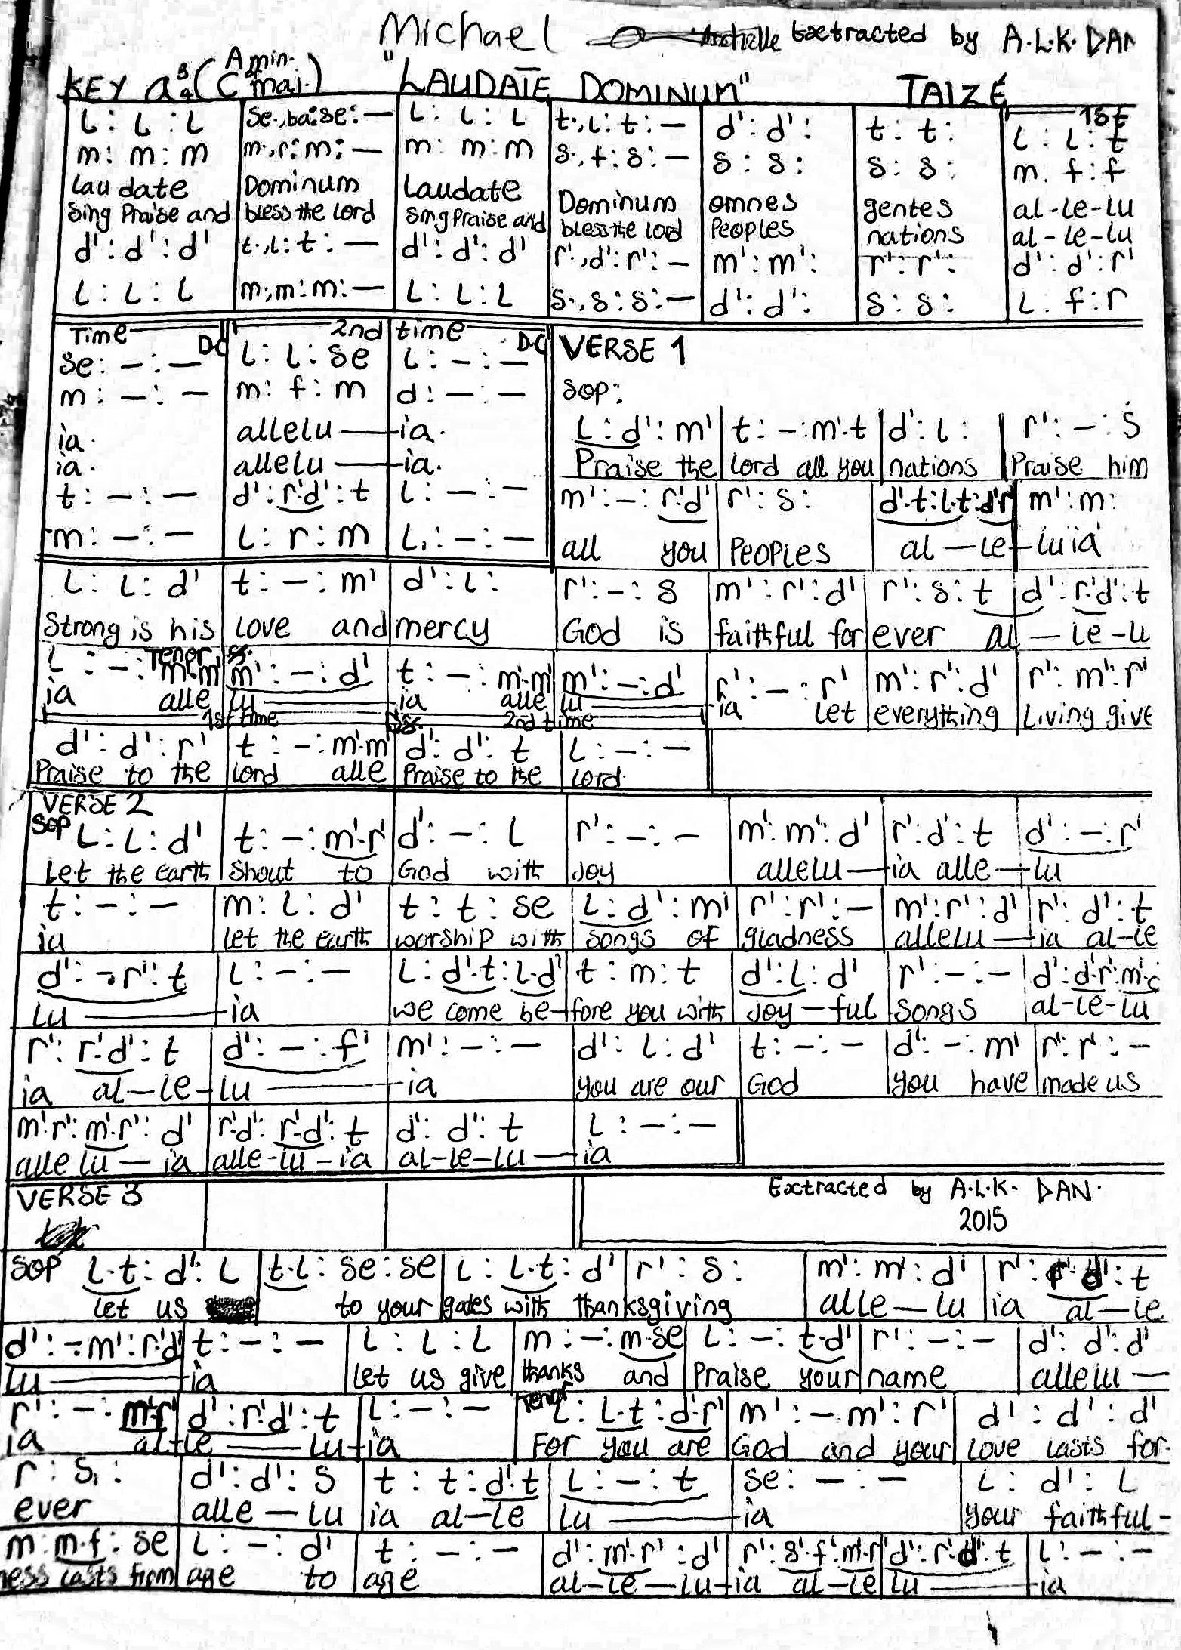 Michael Extracted by A.L.K. DAN
KEY a 3/4 (A min. C maj.) "LAUDATE DOMINUM" TAIZE
1st
L : L : L | se.,ba:se: — | L : L : L | t.,L: t: — | d': d': | t: t: | L : L : t
m: m: m | m.,r: m: — | m: m: m | s.,f: s: — | s: s: | s: s: | m. f: f
Laudate | Dominum | Laudate | Dominum | omnes | gentes | al-le-lu
Sing Praise and | bless the lord | Sing Praise and | bless the lord | Peoples | nations | al-le-lu
d': d': d' | t.,L: t: — | d': d': d' | r'.,d': r': — | m': m': | r': r': | d': d': r'
L : L : L | m.,m: m: — | L : L : L | s.,s: s: — | d': d': | s: s: | L : f: r
Time D.C | 2nd time D.C
se: — : — | L : L : se | L : — : —
m: — : — | m: f: m | d: — : —
ia. | allelu — ia.
ia. | allelu — ia.
t: — : — | d': r'.d': t | L : — : —
m: — : — | L : r: m | L, : — : —
VERSE 1
SOP:
L : d': m' | t: — : m'.t | d': L : | r': — : s
Praise the | lord all you | nations | Praise him
m': — : r'.d' | r': s: | d'.t: L.t: d'.r' | m': m:
all you | Peoples | al — le — luia
L : L : d' | t: — : m' | d': L : | r': — : s | m': r': d' | r': s: t | d': r'.d': t
Strong is his | love and | mercy | God is | faithful for | ever al — le - lu
Tenor
L : — : m'.m' | m': — : d' | t: — : m'.m' | m': — : d' | r': — : r' | m': r': d' | r': m': r'
ia alle | lu | ia alle | lu | ia let | everything | Living give
1st time 2nd time
d': d': r' | t: — : m'.m' | d': d': t | L : — : —
Praise to the | lord alle | Praise to the | lord.
VERSE 2
SOP L : L : d' | t: — : m'.r' | d': — : L | r': — : — | m': m': d' | r': d': t | d': — : r'
Let the earth | shout to | God with | Joy | allelu — ia alle — lu
t: — : — | m: L : d' | t: t: se | L : d': m' | r': r': — | m': r': d' | r': d': t
ia | let the earth | worship with | songs of | gladness | allelu — ia al-le
d': — r': t | L : — : — | L : d'.t: L.d' | t: m: t | d': L : d' | r': — : — | d': d'.r': m'.
lu — ia | we come be — fore you with | Joy — ful | songs | al-le-lu
r': r'.d': t | d': — : f' | m': — : — | d': L : d' | t: — : — | d': — : m' | r': r': —
ia al — le — lu — ia | you are our | God | you have | made us
m'.r': m'.r': d' | r'.d': r'.d': t | d': d': t | L : — : —
alle lu — ia | alle-lu-ia | al-le-lu — ia
VERSE 3 Extracted by A.L.K. DAN.
2015
SOP L.t: d': L | t.L : se: se | L : L.t: d' | r': s: | m': m': d' | r': r'.d': t
let us to your | gates with thanksgiving | alle — lu | ia al — le
d': — m': r'.d' | t: — : — | L : L : L | m: — : m.se | L : — : t.d' | r': — : — | d': d': d'
lu — ia | let us give | thanks and | Praise your | name | allelu —
r': — : m'.r' | d': r'.d': t | L : — : — | Tenor L : L.t: d'.r' | m': — m': r' | d': d': d'
ia al — le — lu — ia | For you are | God and your | love lasts for-
r: s, : | d': d': s | t: t: d'.t | L : — : t | se: — : — | L : d': L
ever | alle — lu | ia al — le | lu — ia | your faithful -
m: m.f: se | L : — : d' | t: — : — | d': m'.r': d' | r': s'.f': m'.r' | d': r'.d': t | L : — : —
ness lasts from | age to | age | al — le — lu — ia al — le | lu — ia